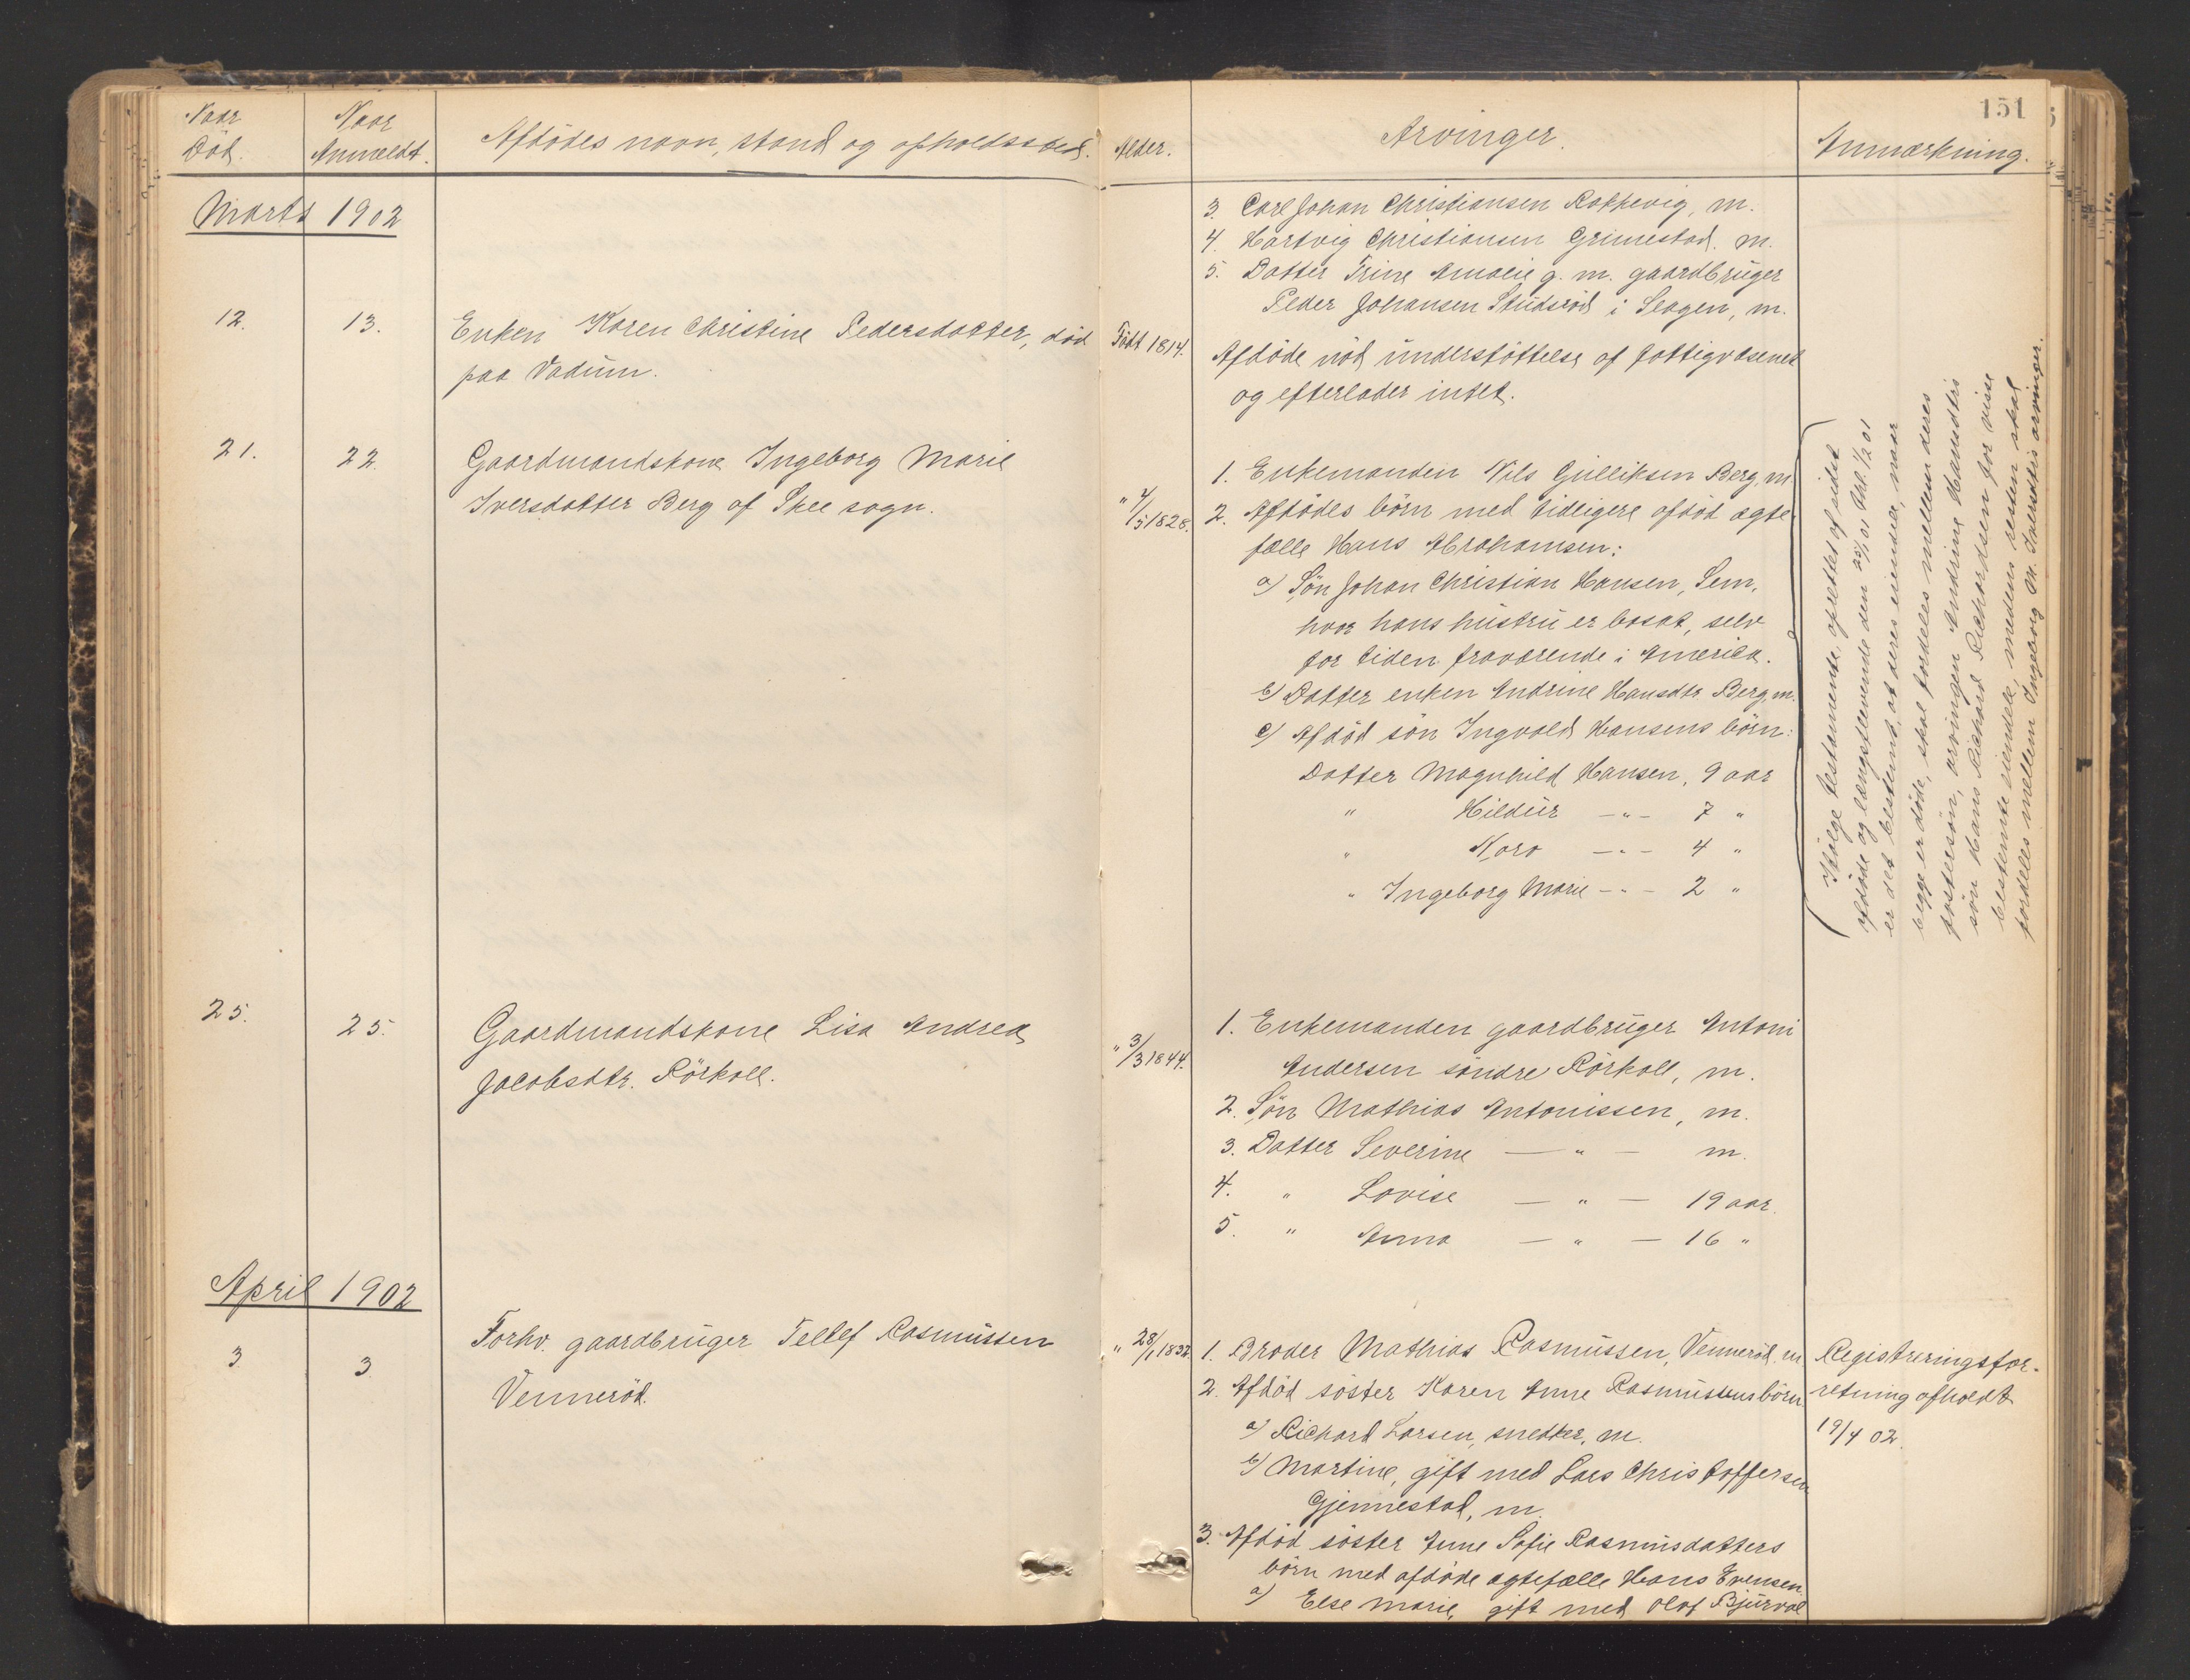 151
Naar Död.
Naar Anmeldt.
Afdödes navn, stand og opholdssted.
Alder.
Arvinger.
Anmærkning.
Marts 1902
3. Carl Johan Christiansen Rakkevig, m.
4. Hartvig Christiansen Grimestad. m.
5. Datter Trine Amalie g. m. gaardbruger
Peder Johansen Studsröd i Slagen, m.
12.
13.
Enken Karen Christine Pedersdatter, död
paa Vadum.
Födt 1814.
Afdöde nöd understöttelse af fattigvæsenet
og efterlader intet.
21.
22.
Gaardmandskone Ingeborg Marie
Iversdatter Berg af Skee sogn.
" 4/5 1828.
1. Enkemanden Nils Gulliksen Berg, m.
2. Afdödes börn med tidligere afdöd ægte-
fælle Hans Abrahamsen:
a) Sön Johan Christian Hansen, Sem,
hvor hans hustru er bosat, selv
for tiden fraværende i Amerika.
b) Datter enken Andrine Hansdtr. Berg, m.
c) Afdöd sön Ingvald Hansens börn:
Datter Magnhild Hansen, 9 aar
" Hildur — " — 7 "
" Nora — " — 4 "
" Ingeborg Marie — " — 2 "
Ifölge testamente, oprettet af sidst
afdöde og længstlevende den 25/1 01 thl. 1/2 01
er det bestemt, at deres eiendele, naar
begge er döde, skal fordeles mellem deres
fostersön, arvingen Andrine Hansdtrs
sön Hans Richard Richardsen for visse
bestemte eiendele, medens resten skal
fordeles mellem Ingeborg M. Iversdtrs arvinger.
25.
25.
Gaardmandskone Lisa Andrea
Jacobsdtr. Rörkoll.
" 3/3 1844.
1. Enkemanden gaardbruger Antoni
Andersen söndre Rörkoll, m.
2. Sön Mathias Antonissen, m.
3. Datter Severine — " — m.
4. " Lovise — " — 19 aar.
5. " Anna — " — 16 "
April 1902
3.
3.
Forhv. gaardbruger Tellef Rasmussen
Venneröd.
" 28/1 1832.
1. Broder Mathias Rasmussen, Venneröd, m
2. Afdöd söster Karen Anne Rasmussens börn
a) Richard Larsen, snedker, m.
b) Martine, gift med Lars Christoffersen
Gjennestad, m.
3. Afdöd söster Anne Sofie Rasmusdatters
börn med afdöde ægtefælle Hans Evensen.
a) Else Marie, gift med Olaf Bjurval
Registreringsfor-
retning afholdt
19/4 02.